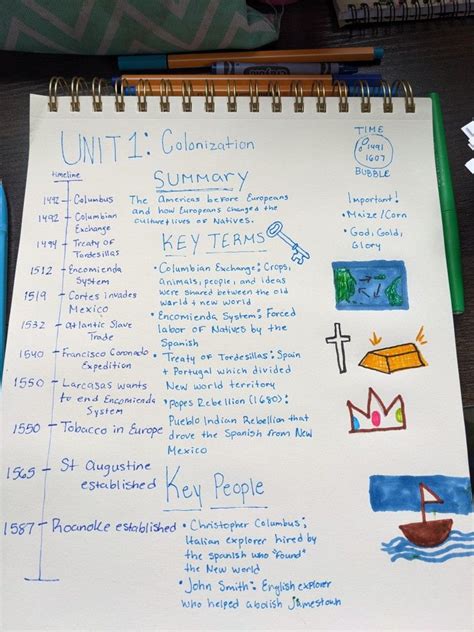 UNIT 1: Colonization
TIME
1491
1607
BUBBLE
timeline
1492 Columbus
1492 Columbian
Exchange
1494 Treaty of
Tordesillas
1512 Encomienda
System
1519 Cortes invades
Mexico
1532 Atlantic Slave
Trade
1540 Francisco Coronado
Expedition
1550 Larcasas wants
to end Encomienda
System
1550 Tobacco in Europe
1565 St Augustine
established
1587 Roanoke established
SUMMARY
The Americas before Europeans
and how Europeans changed the
culture/lives of Natives.
KEY TERMS
• Columbian Exchange: Crops,
animals, people, and ideas
were shared between the old
world + new world
• Encomienda System: Forced
labor of Natives by the
Spanish
• Treaty of Tordesillas: Spain
+ Portugal which divided
New World territory
• Popes Rebellion (1680):
Pueblo Indian Rebellion that
drove the Spanish from New
Mexico
Key People
• Christopher Columbus:
Italian explorer hired by
the spanish who "found"
the New World
• John Smith: English explorer
who helped abolish jamestown
Important!
• Maize/Corn
• God, Gold,
Glory